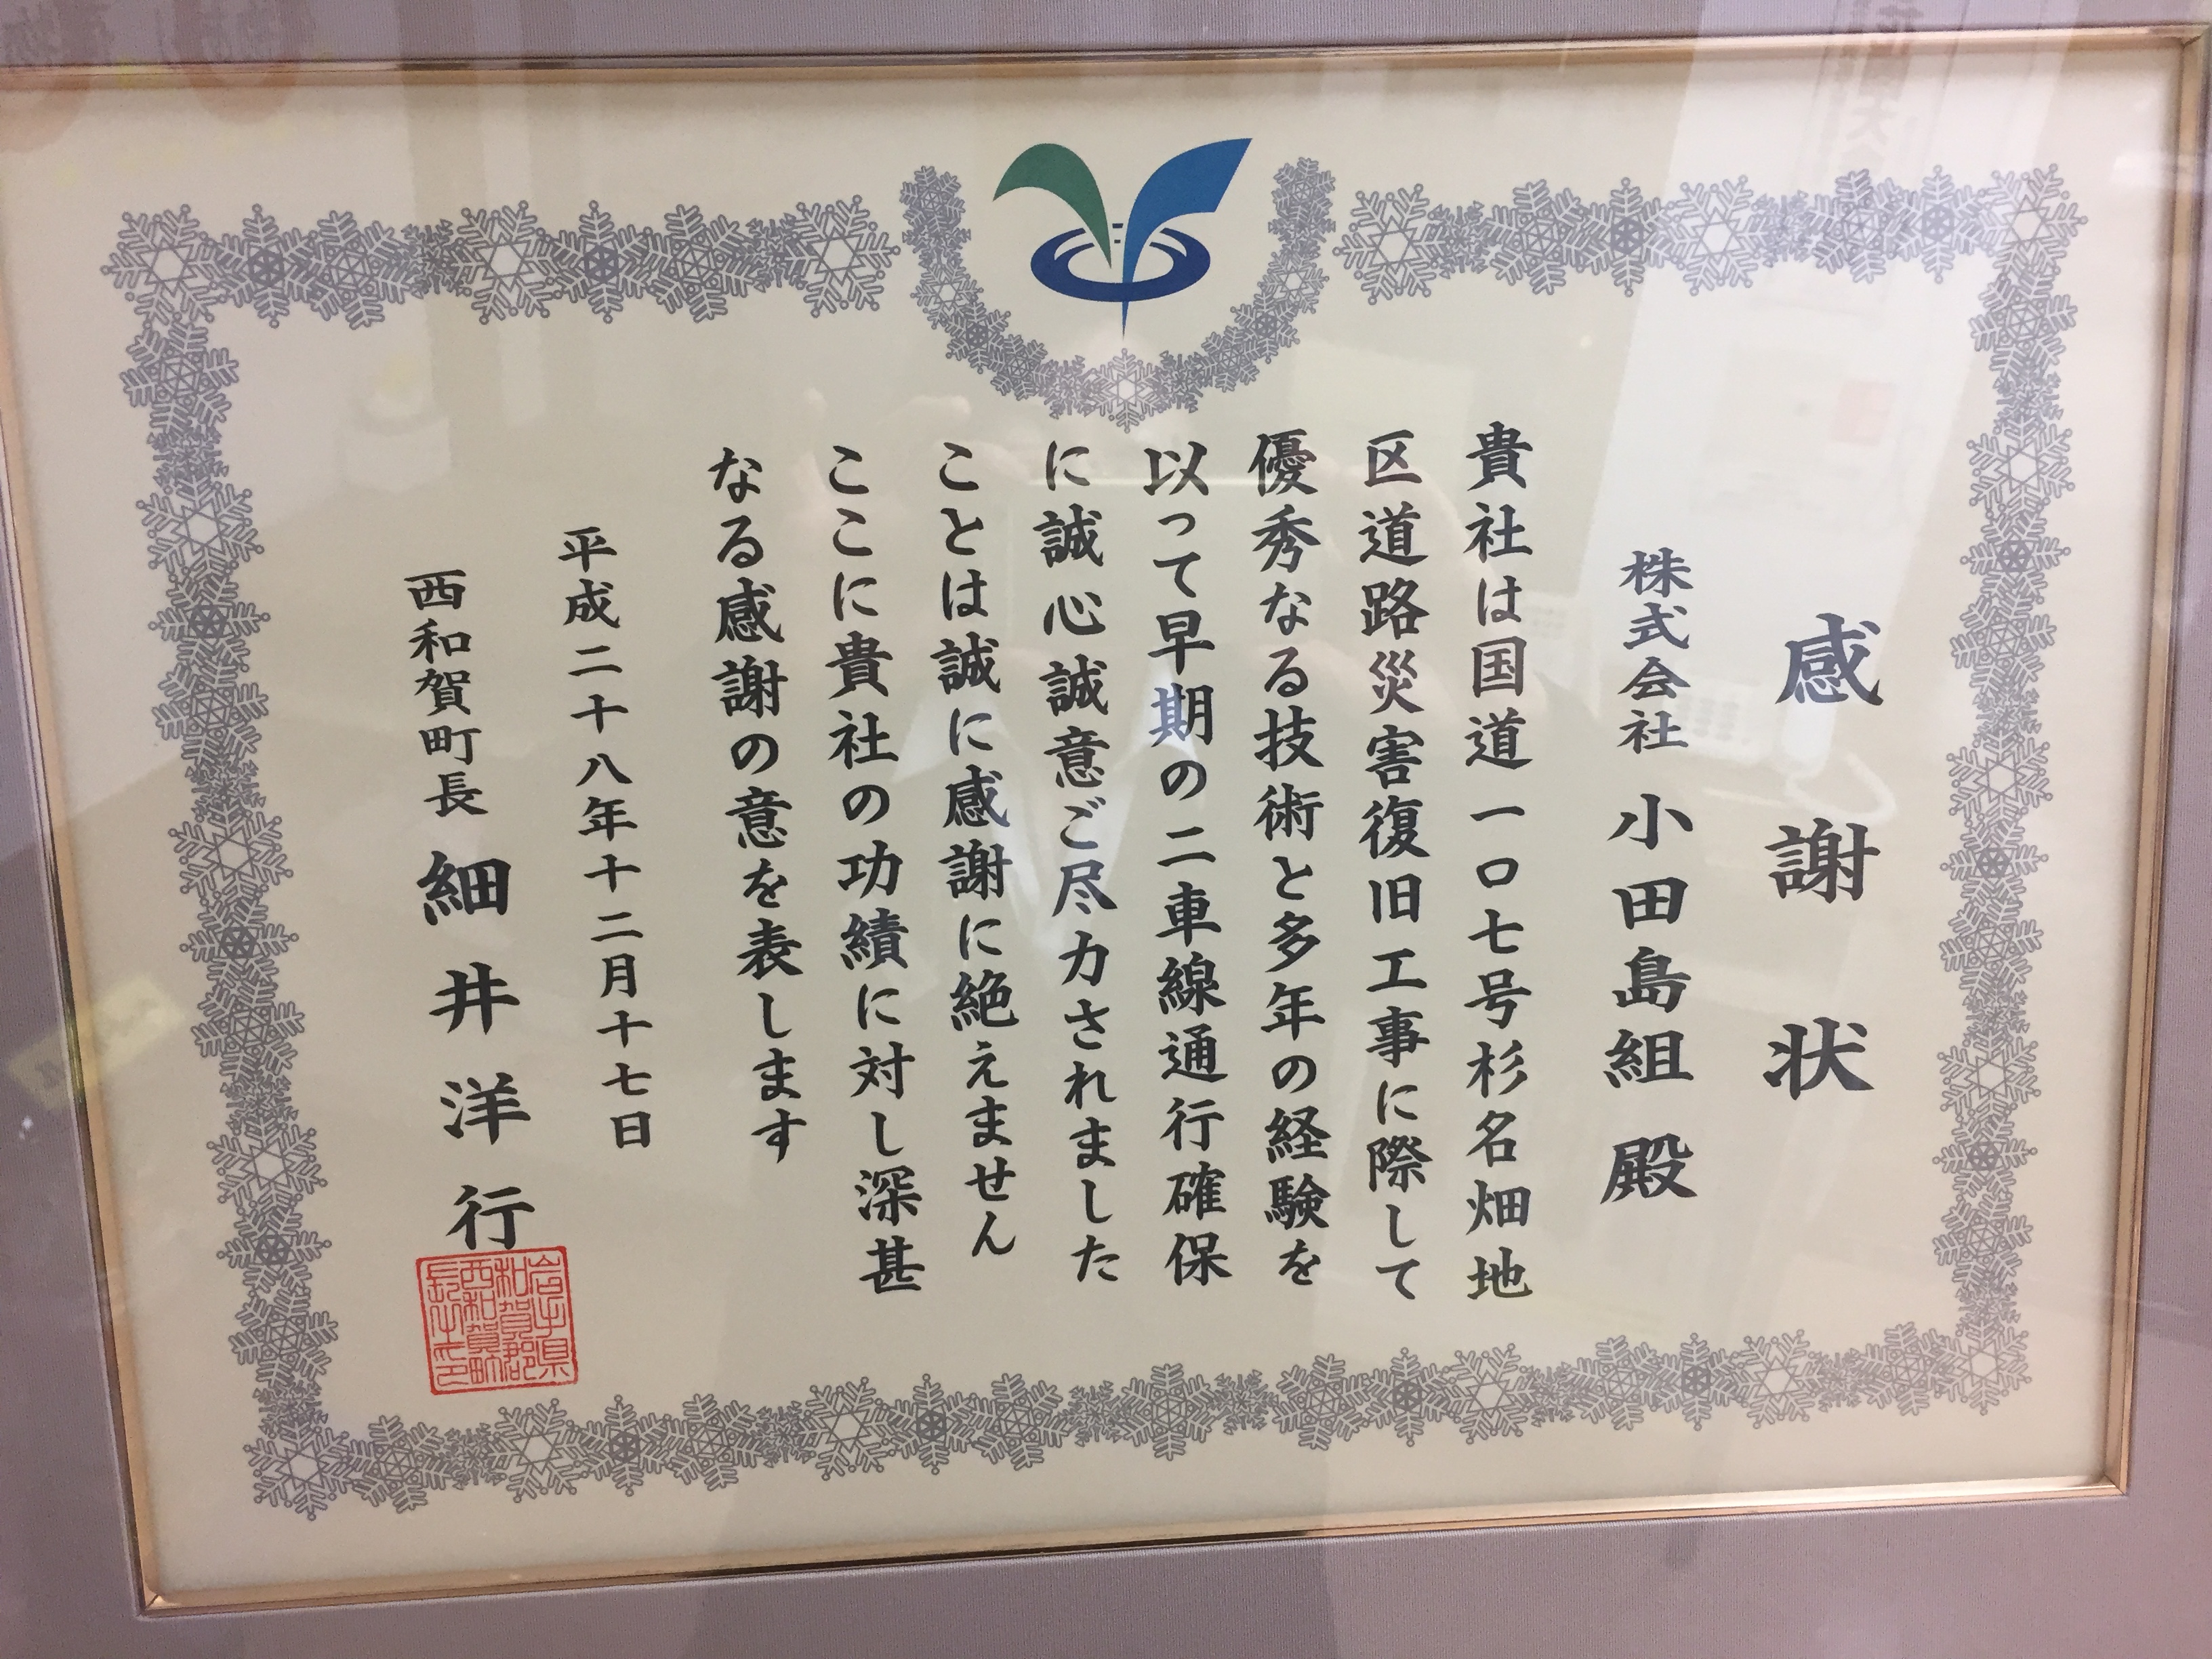 感謝状
株式会社 小田島組 殿
貴社は国道一〇七号杉名畑地
区道路災害復旧工事に際して
優秀なる技術と多年の経験を
以って早期の二車線通行確保
に誠心誠意ご尽力されました
ことは誠に感謝に絶えません
ここに貴社の功績に対し深甚
なる感謝の意を表します
平成二十八年十二月十七日
西和賀町長 細井洋行
岩手県
和賀郡
西和賀町
長之印